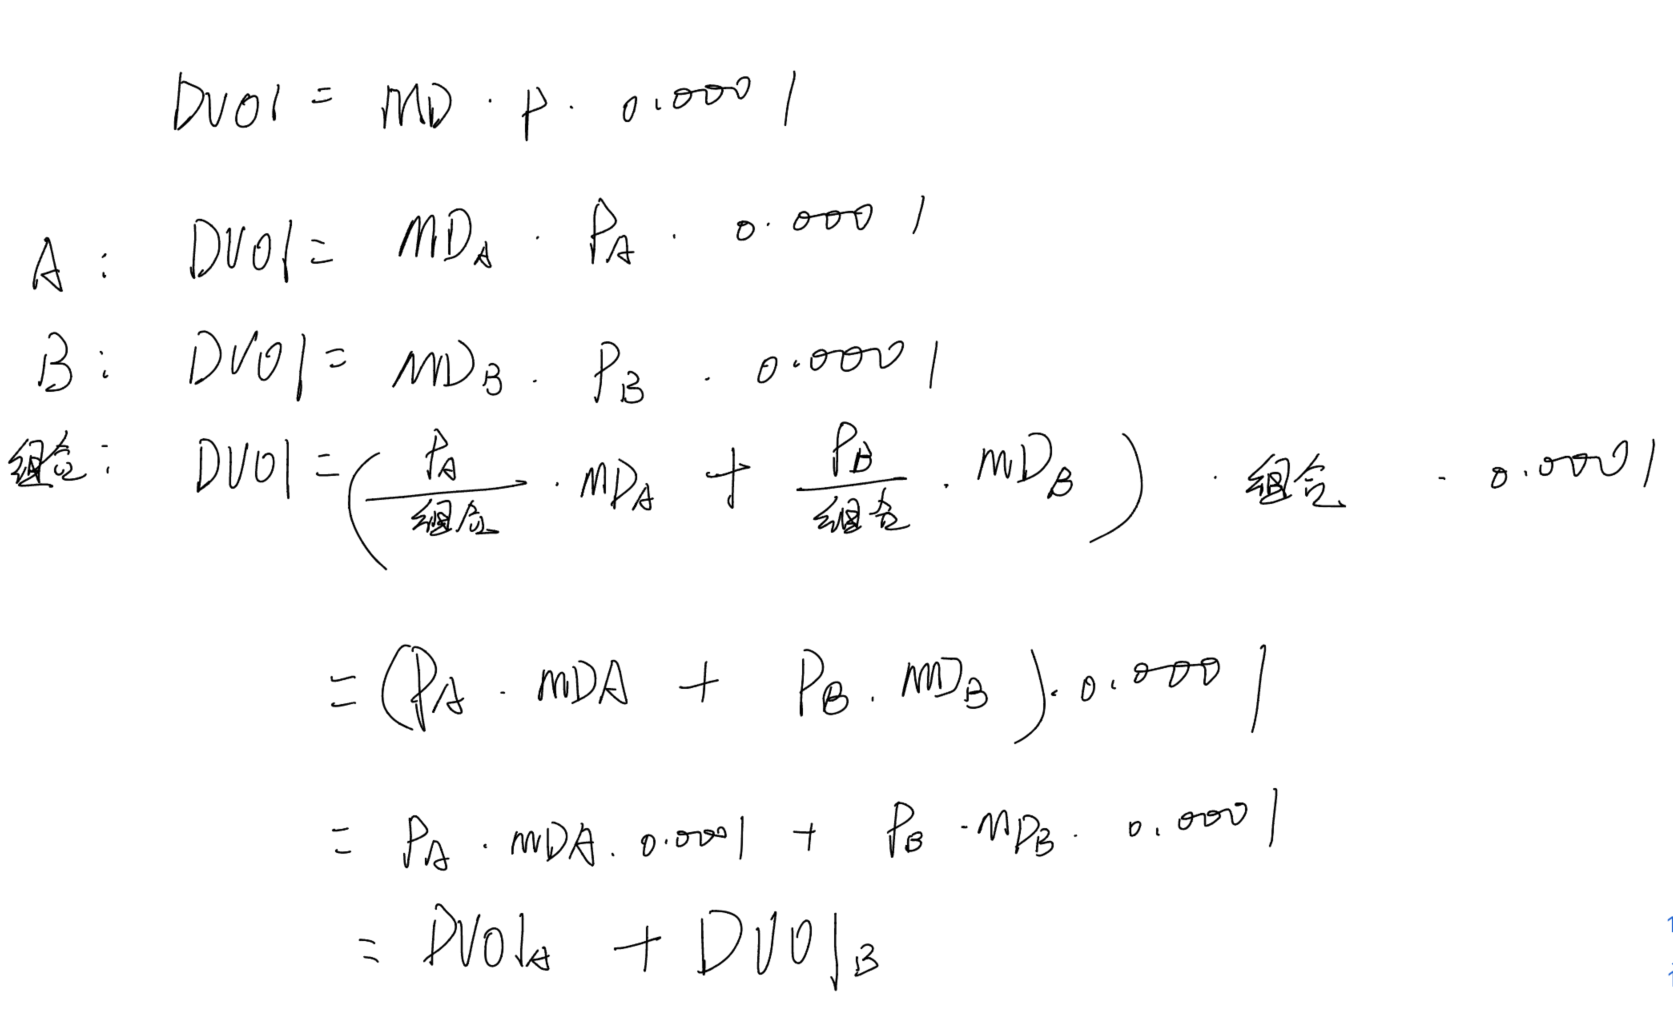 DV01 = MD · P · 0.0001
A: DV01 = MDA · PA · 0.0001
B: DV01 = MDB · PB · 0.0001
组合: DV01 = (PA/组合 · MDA + PB/组合 · MDB) · 组合 · 0.0001
= (PA · MDA + PB · MDB) · 0.0001
= PA · MDA · 0.0001 + PB · MDB · 0.0001
= DV01A + DV01B